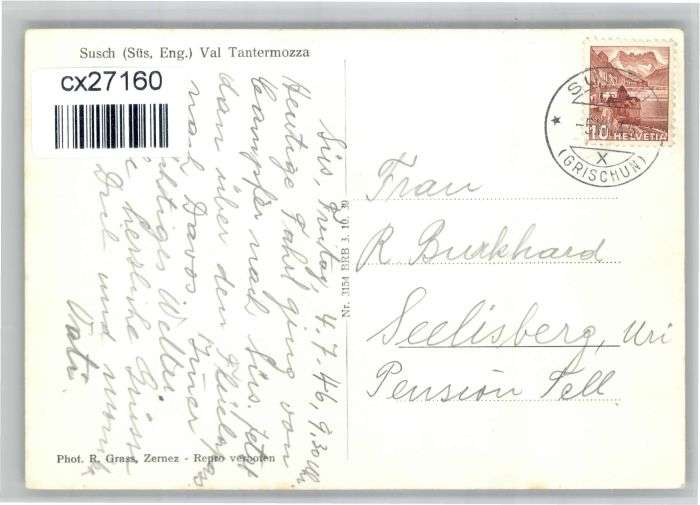 Susch (Süs, Eng.) Val Tantermozza
cx27160
SUSCH
(GRISCHUN)
X
10 HELVETIA
Süs, Freitag, 4.7.46, 9.30 Uhr
Heutige Fahrt ging von
Campfèr nach Süs. Jetzt
dan über den Flüela pass
nach Davos. Immer
Wetter
herzliche Grüsse
Dich und
Vati.
Nr. 3154 BRB 3. 10. 39
Frau
R Burkhard
Seelisberg, Uri
Pension Tell
Phot. R. Grass, Zernez - Repro verboten